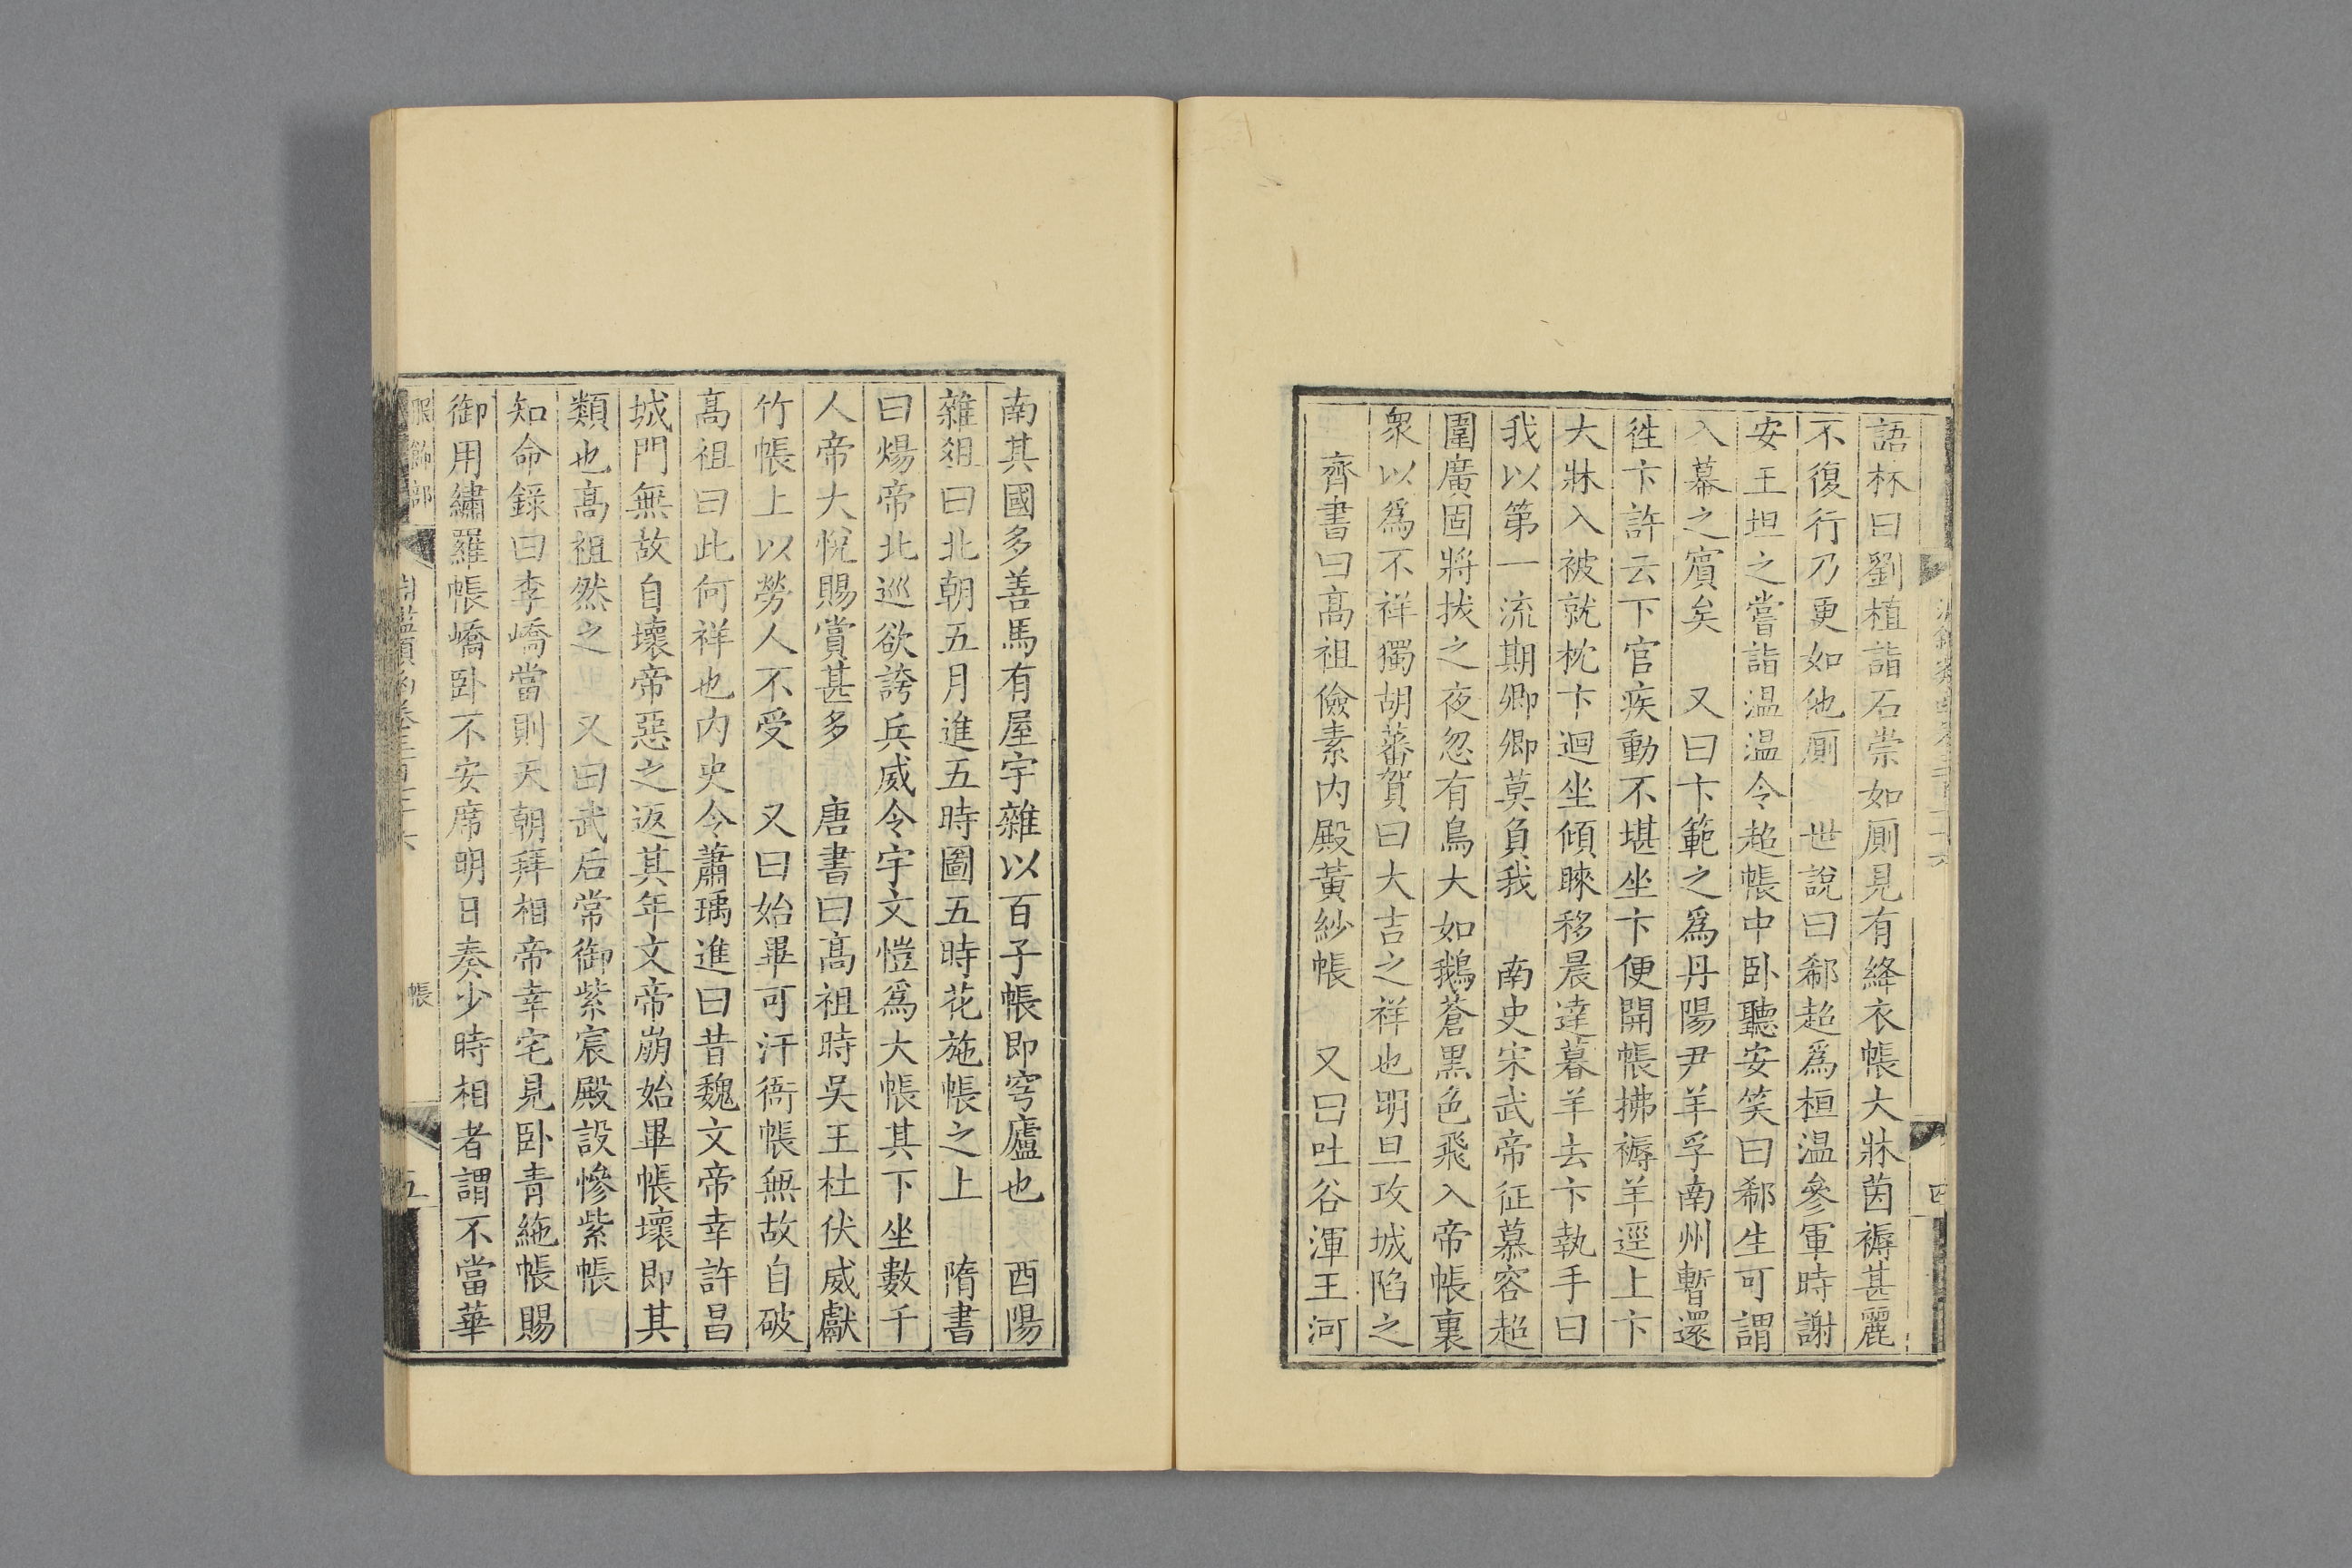 語林曰劉植詣石崇如厠見有絳衣帳大牀茵褥甚麗
不復行乃更如他厠　世說曰郗超爲桓温參軍時謝
安王坦之嘗詣温温令超帳中卧聽安笑曰郗生可謂
入幕之賓矣　又曰卞範之爲丹陽尹羊孚南州暫還
徃卞許云下官疾動不堪坐卞便開帳拂褥羊逕上卞
大牀入被就枕卞迴坐傾睞移晨達暮羊去卞執手曰
我以第一流期卿卿莫負我　南史宋武帝征慕容超
圍廣固將拔之夜忽有鳥大如鵝蒼黒色飛入帝帳裏
衆以爲不祥獨胡蕃賀曰大吉之祥也明旦攻城陷之
齊書曰高祖儉素内殿黃紗帳　又曰吐谷渾王河
南其國多善馬有屋宇雜以百子帳即穹廬也　酉陽
雜俎曰北朝五月進五時圖五時花施帳之上　隋書
曰煬帝北巡欲誇兵威令宇文愷爲大帳其下坐數千
人帝大悅賜賞甚多　唐書曰高祖時吳王杜伏威獻
竹帳上以勞人不受　又曰始畢可汗衙帳無故自破
高祖曰此何祥也内史令蕭瑀進曰昔魏文帝幸許昌
城門無故自壞帝惡之返其年文帝崩始畢帳壞即其
類也高祖然之　又曰武后常御紫宸殿設慘紫帳
知命錄曰李嶠當則天朝拜相帝幸宅見卧青絁帳賜
御用繡羅帳嶠卧不安席明日奏少時相者謂不當華
服飾部
帳
五